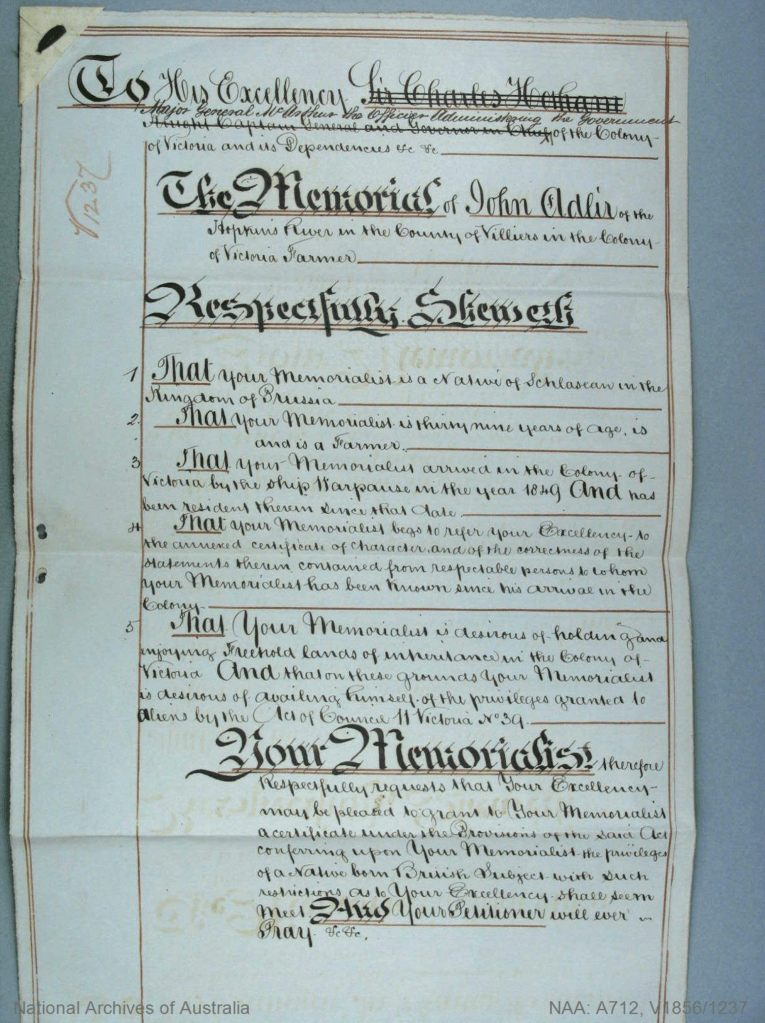 To His Excellency Sir Charles Hotham
Major General McArthur the Officer Administering the Government
Knight Captain General and Governor in Chief of the Colony
of Victoria and its Dependencies &c &c
V1237
The Memorial of John Adlir of the
Hopkins River in the County of Villiers in the Colony
of Victoria Farmer
Respectfully Sheweth
1 That Your Memorialist is a Native of Schlasean in the
Kingdom of Prussia
2. That Your Memorialist is thirty nine years of age, is
and is a Farmer.
3 That your Memorialist arrived in the Colony of
Victoria by the ship Warpause in the year 1849 And has
been resident therein since that date
4 That your Memorialist begs to refer your Excellency to
the annexed certificate of character and of the correctness of the
statements therein contained from respectable persons to whom
your Memorialist has been known since his arrival in the
Colony
5 That Your Memorialist is desirous of holding and
enjoying Freehold lands of inheritance in the Colony of
Victoria And that on these grounds Your Memorialist
is desirous of availing himself of the privileges granted to
Aliens by the Act of Council 11 Victoria No 39.
Your Memorialist therefore
Respectfully requests that Your Excellency
may be pleased to grant to Your Memorialist
a certificate under the Provisions of the said Act
conferring upon Your Memorialist the privileges
of a Native born British Subject with such
restrictions as to Your Excellency shall seem
meet And Your Petitioner will ever
Pray &c &c.
National Archives of Australia
NAA: A712, V1856/1237